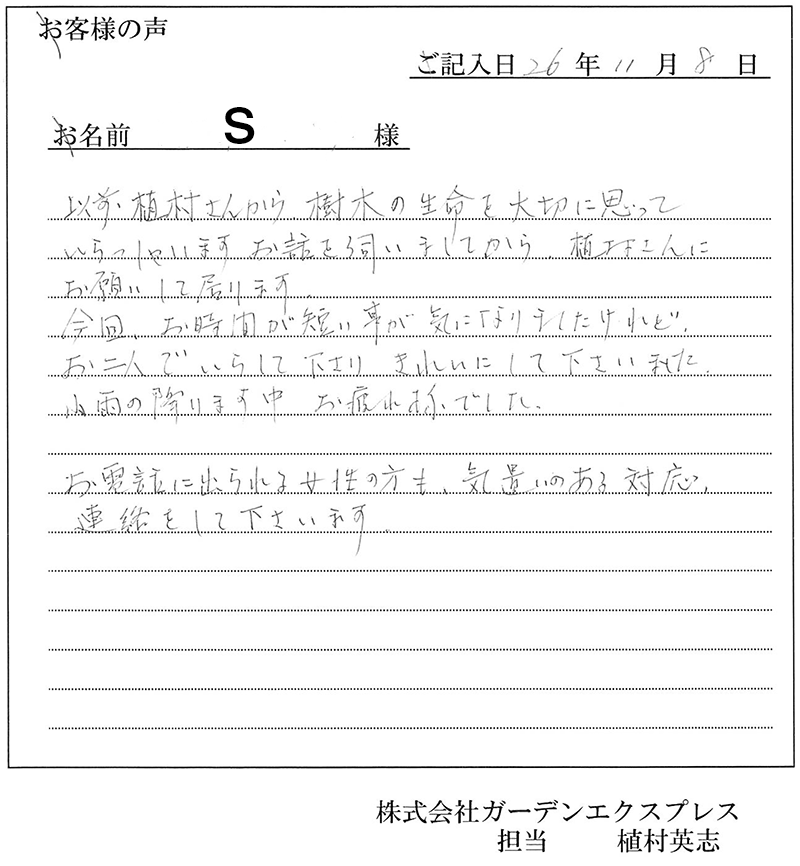 お客様の声
ご記入日 26 年 11 月 8 日
お名前 S 様
以前、植村さんから 樹木の生命を大切に思って
いらっしゃいます お話を伺いましてから、植村さんに
お願いして居ります。
今回、お時間が短い事が気になりましたけれど、
お二人でいらして下さり きれいにして下さいました。
小雨の降ります中 お疲れ様でした。
お電話に出られる女性の方も、気遣いのある対応、
連絡をして下さいます。
株式会社ガーデンエクスプレス
担当 植村英志